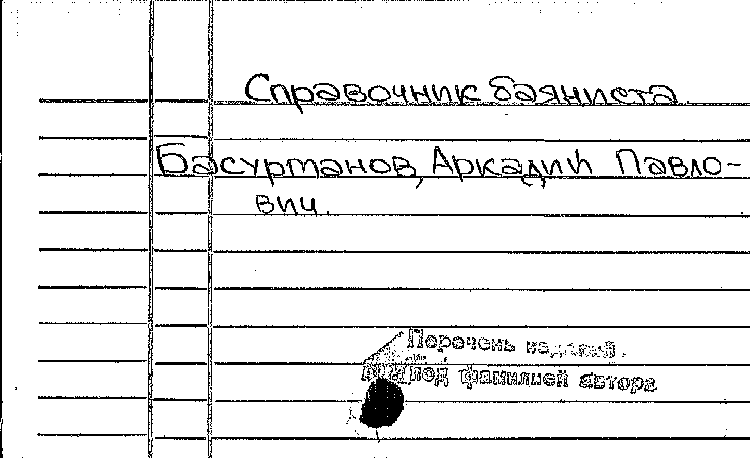 Справочник баяниста.
Басурманов, Аркадий Павло-
вич.
Перечень изданий.
под фамилией автора